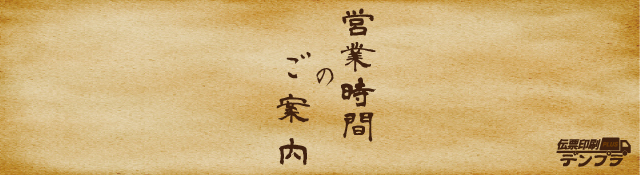 営業時間
の
ご案内
伝票印刷
デンプラ